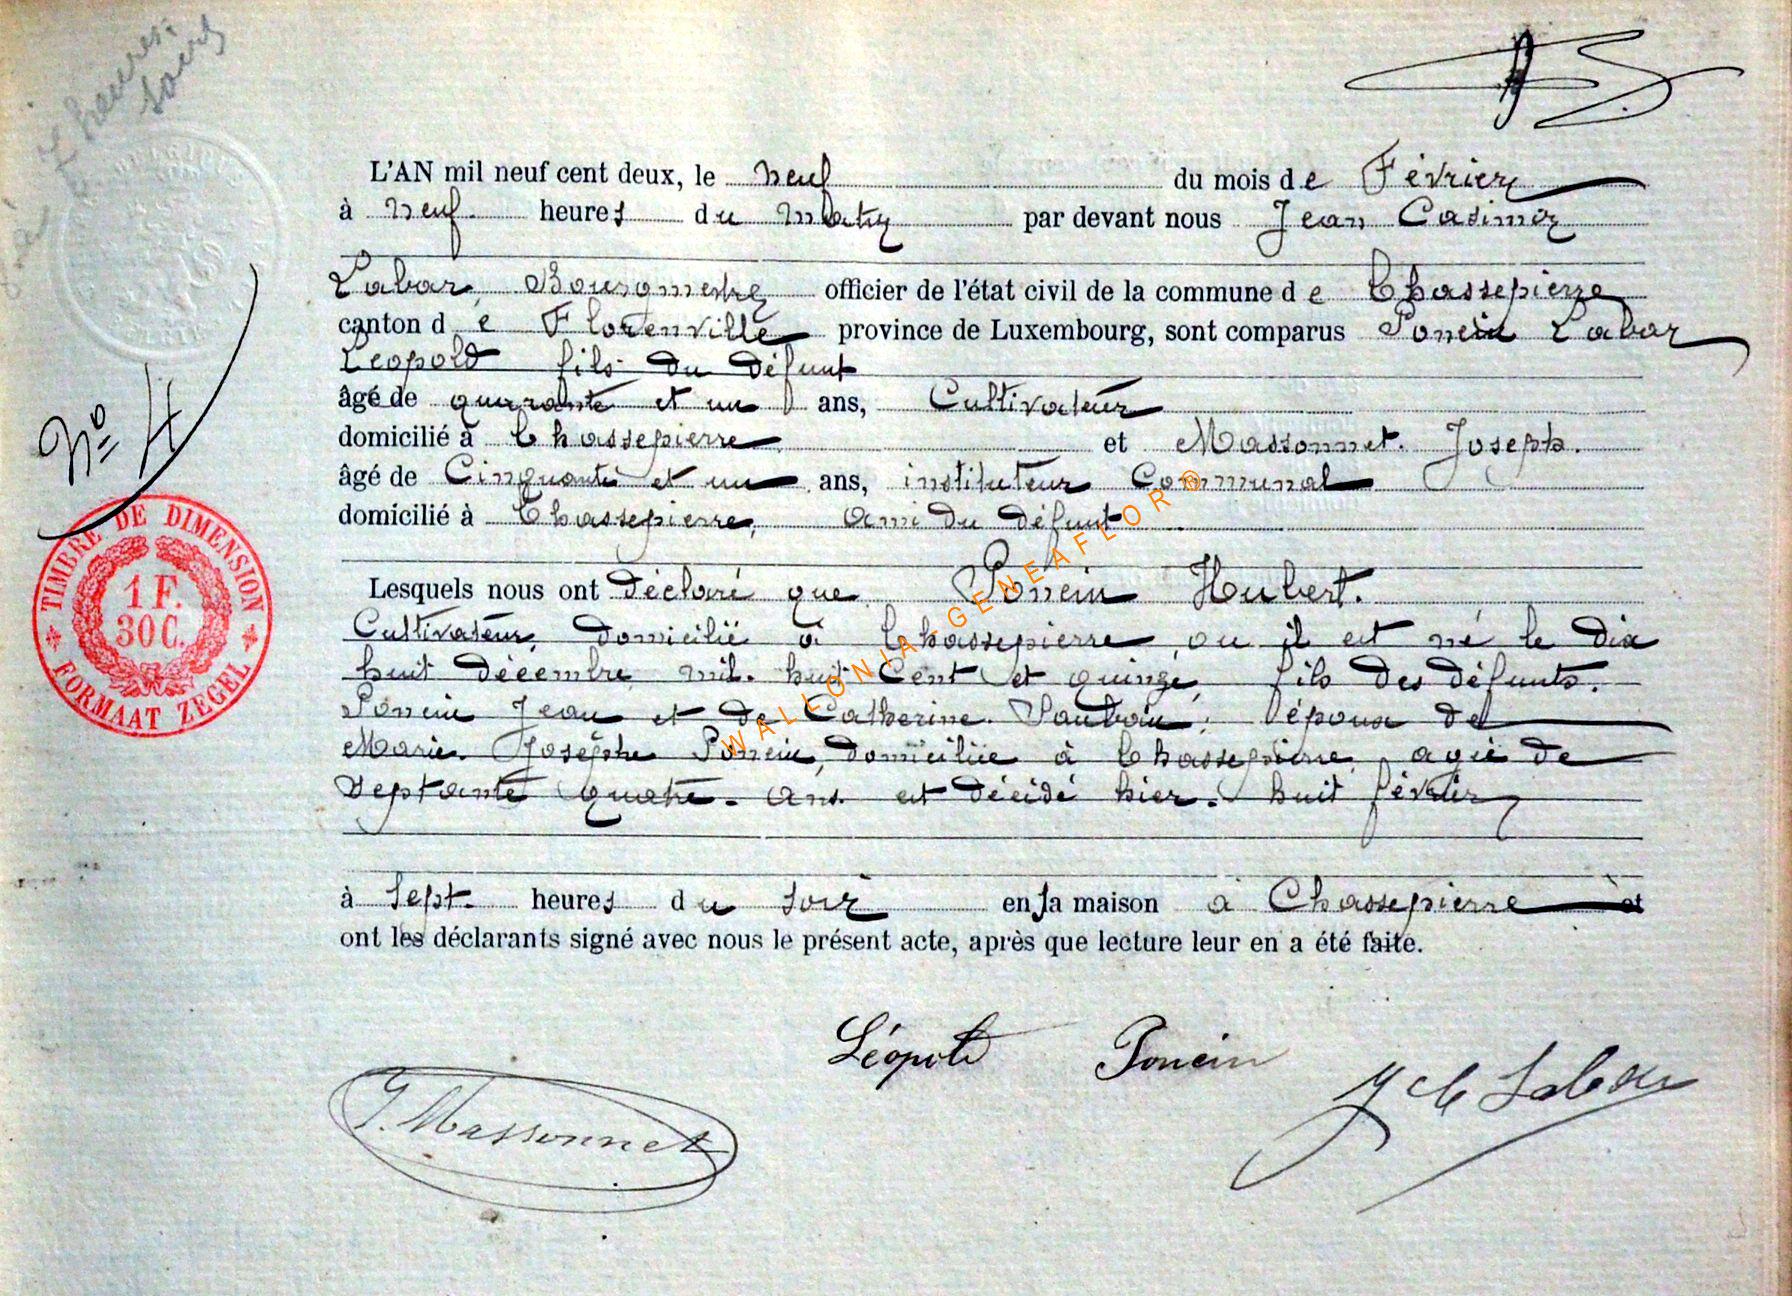 7 heures
soir
L'AN mil neuf cent deux, le neuf du mois de Février
à neuf heures du matin par devant nous Jean Casimir
Labar, Bourgmestre officier de l'état civil de la commune de Chassepierre
canton de Florenville province de Luxembourg, sont comparus Poncin Labar
Léopold fils du défunt
âgé de quarante et un ans, Cultivateur
domicilié à Chassepierre et Massonnet. Joseph.
N° 4
âgé de Cinquante et un ans, instituteur Communal
domicilié à Chassepierre, ami du défunt
TIMBRE DE DIMENSION
1 F.
30 C.
FORMAAT ZEGEL
Lesquels nous ont déclaré que Poncin Hubert.
Cultivateur, domicilié à Chassepierre, ou il est né le dix
huit décembre mil. huit Cent et quinze, fils des défunts.
Poncin Jean et de Catherine. époux de
Marie. Josèphe Poncin, domiciliée à Chassepierre, agé de
Septante quatre. ans. est décédé hier. huit février
à sept. heures du soir en sa maison à Chassepierre et
ont les déclarants signé avec nous le présent acte, après que lecture leur en a été faite.
Léopold Poncin
J. Massonnet
J C Labar
WALLONIA GENEAFLOR ®